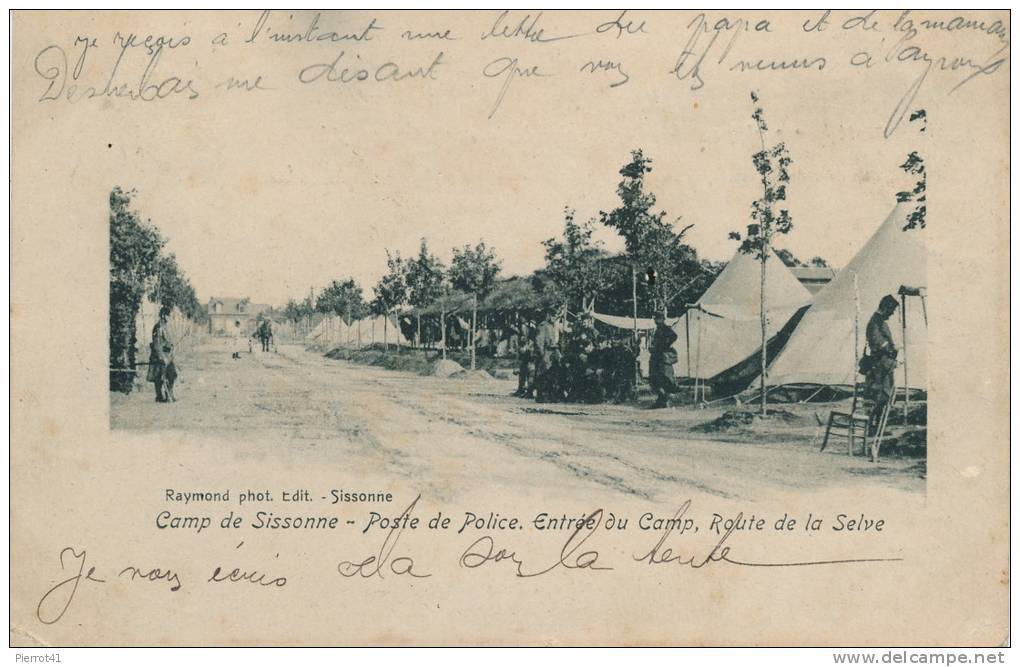 je reçois à l'instant une lettre de papa et de la maman
Desherbais me disant que vous
Raymond phot. Edit. - Sissonne
Camp de Sissonne - Poste de Police. Entrée du Camp, Route de la Selve
Je vous écris de la sous la tente
Pierrot41
http://www.delcampe.net